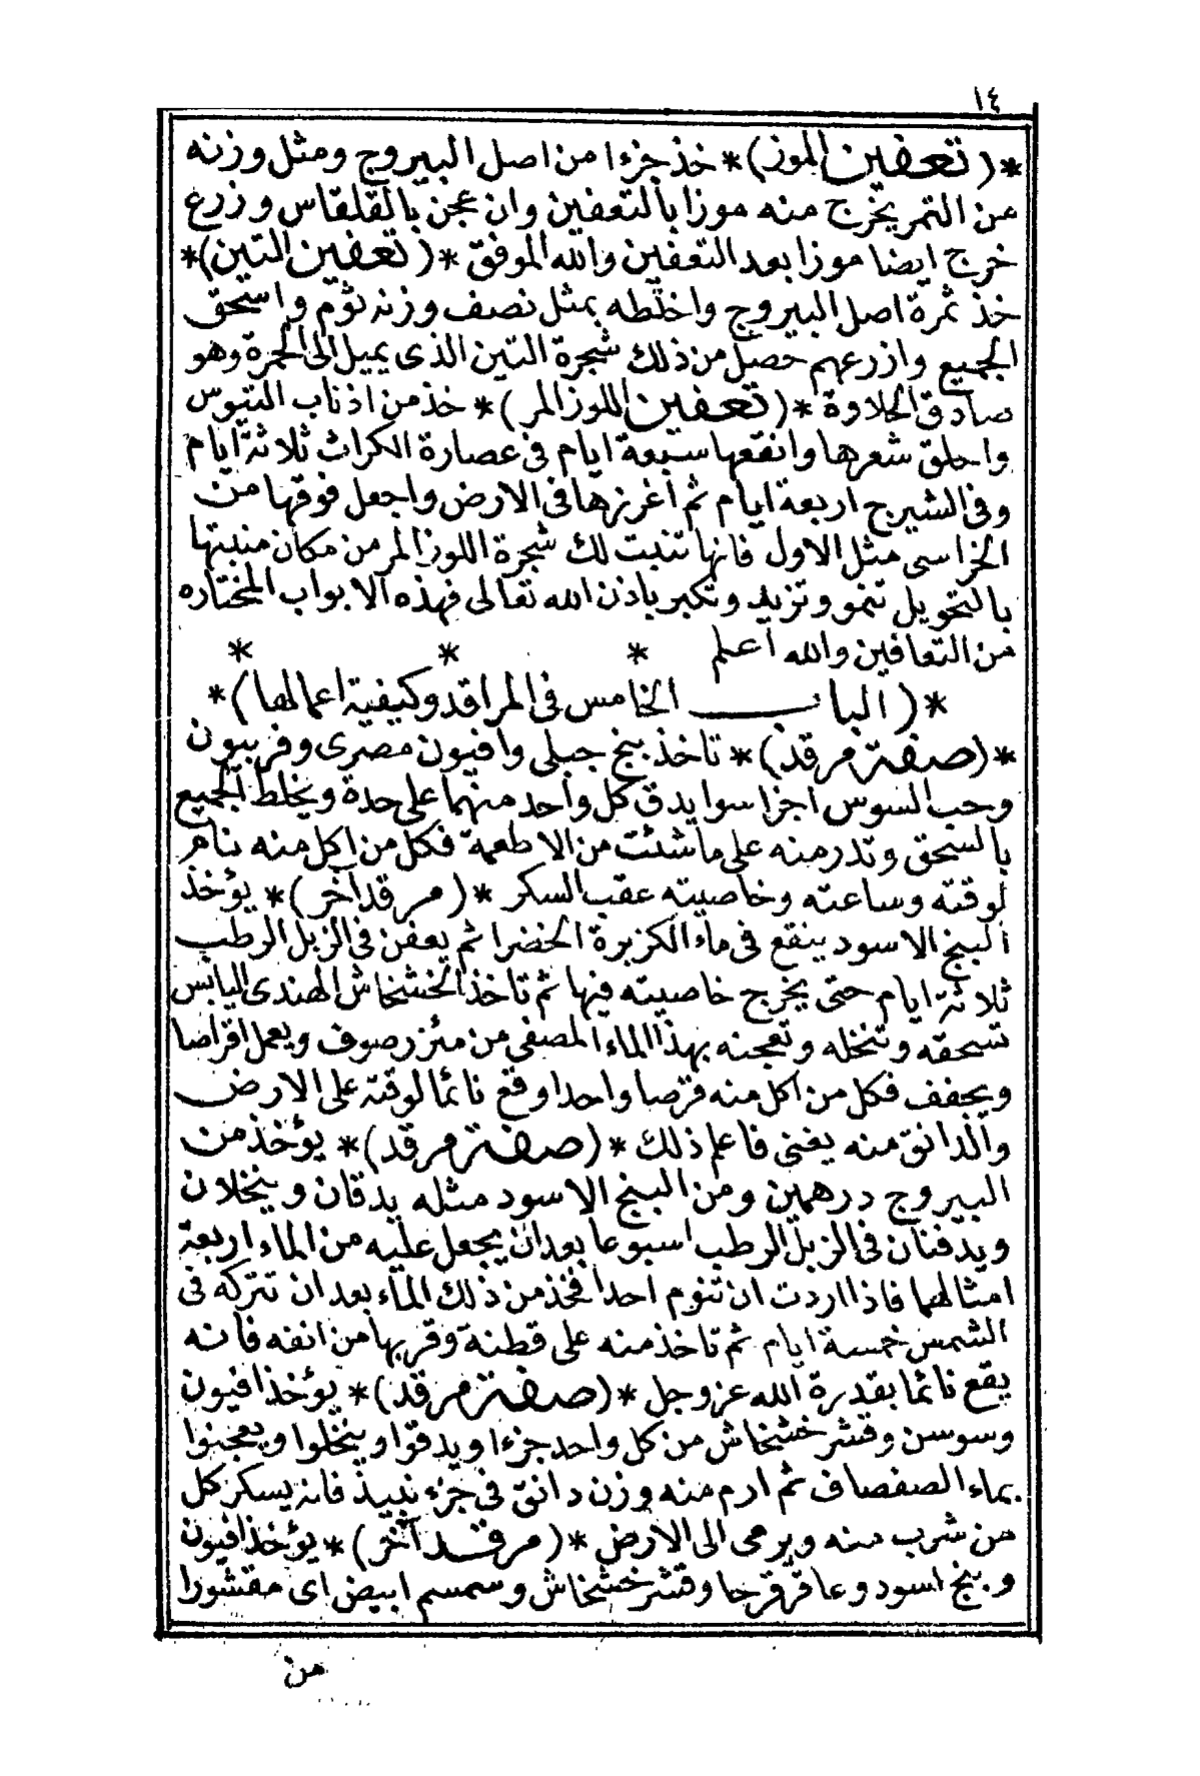 ١٤
*(تعفين الموز)* خذ جزءا من اصل البيروج ومثل وزنه
من التمر يخرج منه موزا بالتعفين وان عجن بالقلقاس وزرع
خرج ايضا موزا بعد التعفين والله الموفق *(تعفين التين)*
خذ ثمرة اصل البيروج واخلطه بمثل نصف وزنه ثوم واسحق
الجميع وازرعهم حصل من ذلك شجرة التين الذى يميل الى الحمرة وهو
صادق الحلاوة *(تعفين اللوز المر)* خذ من اذناب التيوس
واحلق شعرها وانقعها سبعة ايام فى عصارة الكراث ثلاثة ايام
وفى الشيرج اربعة ايام ثم أغرزها فى الارض واجعل فوقها من
الخراسى مثل الاول فانها تنبت لك شجرة اللوز المر من مكان منبتها
بالتحويل تنمو وتزيد وتكبر باذن الله تعالى فهذه الابواب المختاره
من التعافين والله أعلم * * *
*(الباب الخامس فى المراقد وكيفية اعمالها)*
*(صفة مرقد)* تاخذ بنج جبلى وافيون مصرى وفربيون
وحب السوس اجزا سوا يدق كل واحد منهما على حدة ويخلط الجميع
بالسحق وتدر منه على ما شئت من الاطعمة فكل من اكل منه نام
لوقته وساعته وخاصيته عقب السكر *(مرقد آخر)* يؤخذ
البنج الاسود ينقع فى ماء الكزبرة الخضرا ثم يعفن فى الزبل الرطب
ثلاثة ايام حتى يخرج خاصيته فيها ثم تاخذ الخشخاش الهندى اليابس
تسحقه وتنخله وتعجنه بهذا الماء المصفى من مئزر صوف ويعمل اقراصا
ويجفف فكل من اكل منه قرصا واحدا وقع نائما لوقته على الارض
والدانق منه يغنى فاعلم ذلك *(صفة مرقد)* يؤخذ من
البيروج درهمين ومن البنج الاسود مثله يدقان وينخلان
ويدفنان فى الزبل الرطب اسبوعا بعد ان يجعل عليه من الماء اربعة
امثالهما فاذا اردت ان تنوم احدا فخذ من ذلك الماء بعد ان تتركه فى
الشمس خمسة ايام ثم تاخذ منه على قطنة وقربها من انفه فانه
يقع نائما بقدرة الله عز وجل *(صفة مرقد)* يؤخذ افيون
وسوسن وقشر خشخاش من كل واحد جزءا ويدقوا وينخلوا ويعجنوا
بماء الصفصاف ثم ارم منه وزن دانق فى جزء نبيذ فانه يسكر كل
من شرب منه ويرمى الى الارض *(مرقد آخر)* يؤخذ افيون
وبنج اسود وعاقرقرحا وقشر خشخاش وسمسم ابيض اى مقشورا
من